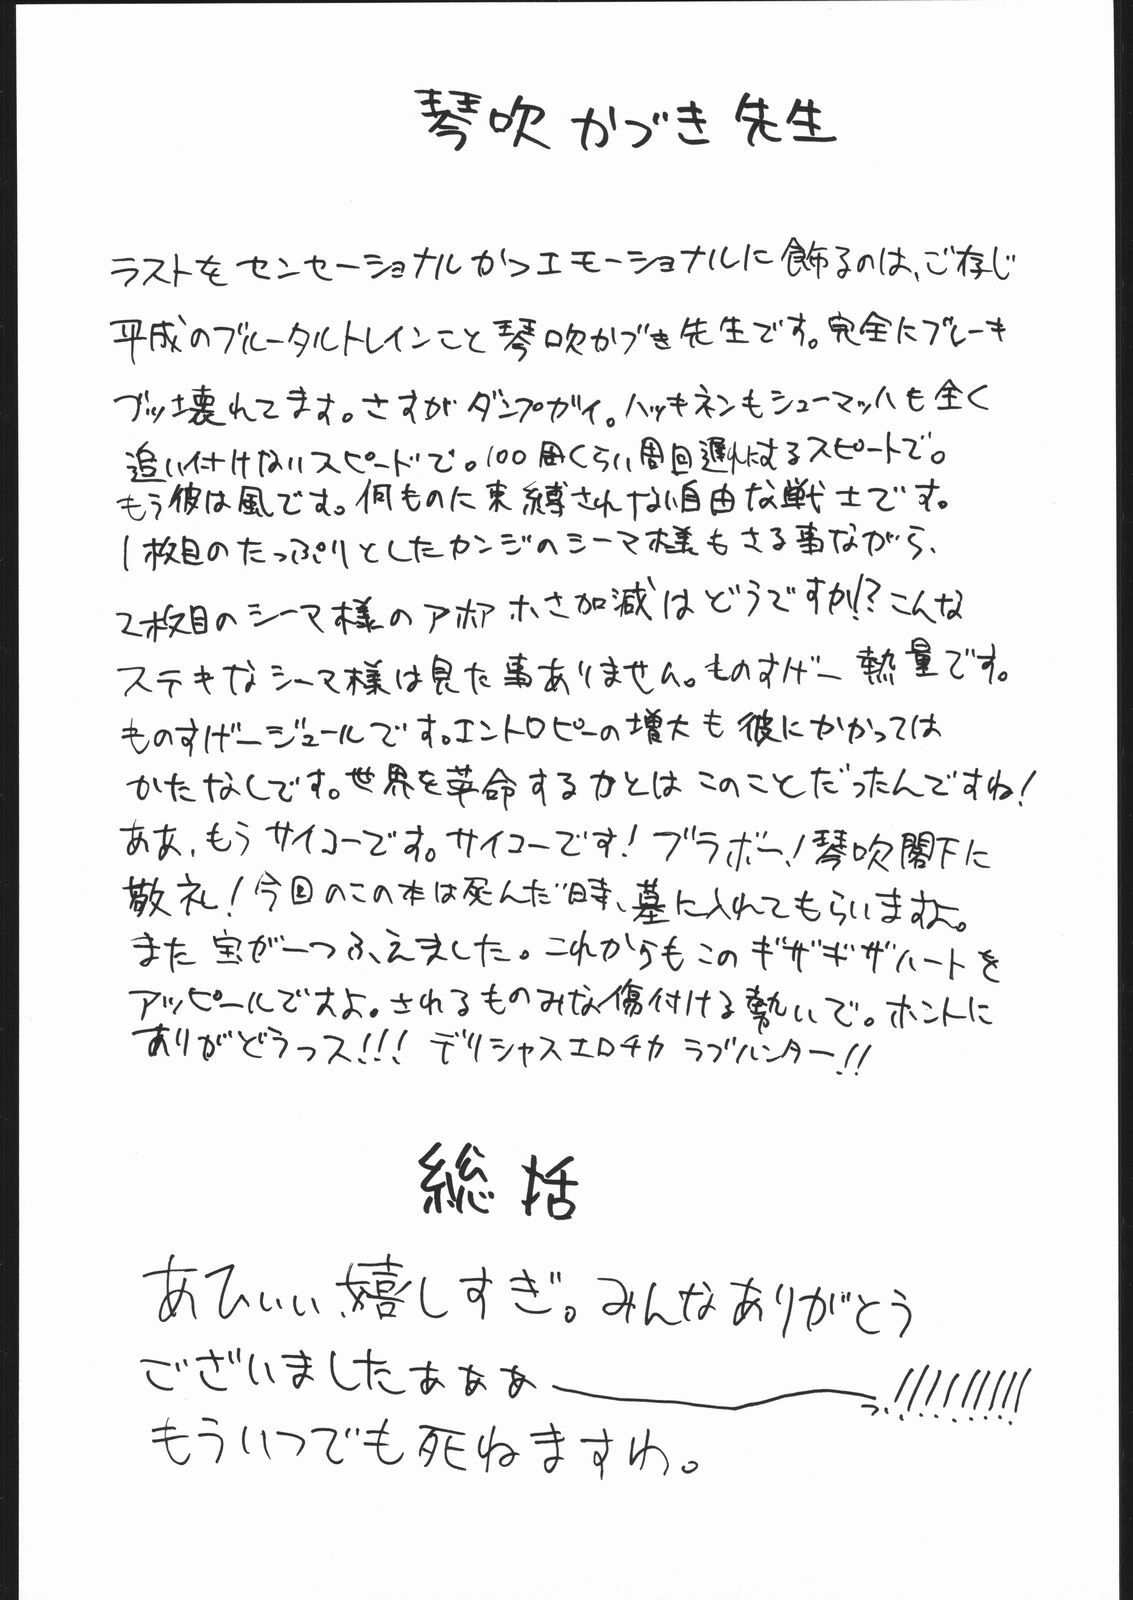 琴吹かづき先生
ラストをセンセーショナルかつエモーショナルに飾るのは、ご存じ
平成のブルータルトレインこと琴吹かづき先生です。完全にブレーキ
ブッ壊れてます。さすがダンプガイ。ハッキネンもシューマッハも全く
追い付けないスピードで。100周くらい周回遅れにするスピードで。
もう彼は風です。何ものに束縛されない自由な戦士です。
1枚目のたっぷりとしたカンジのシーマ様もさる事ながら、
2枚目のシーマ様のアホアホさ加減はどうですか!?こんな
ステキなシーマ様は見た事ありません。ものすげー熱量です。
ものすげージュールです。エントロピーの増大も彼にかかっては
かたなしです。世界を革命する力とはこのことだったんですね!
ああ、もうサイコーです。サイコーです!ブラボー!琴吹閣下に
敬礼!今回のこの本は死んだ時、墓に入れてもらいますよ。
また宝が一つふえました。これからもこのギザギザハートを
アッピールですよ。されるものみな傷付ける勢いで。ホントに
ありがどうっス!!! デリシャスエロチカラブハンター!!
総括
あひぃぃ、嬉しすぎ。みんなありがとう
ございましたぁぁぁ――っ!!!!!!!!!
もういつでも死ねますわ。